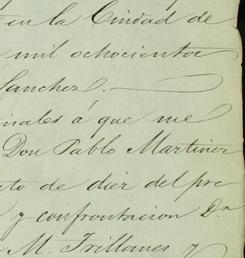 en la Ciudad de
mil ochocientos
Sanchez.
inales á que me
Don Pablo Martinez
to de diez del pre
y confrontacion Dn
M. Trillanes y